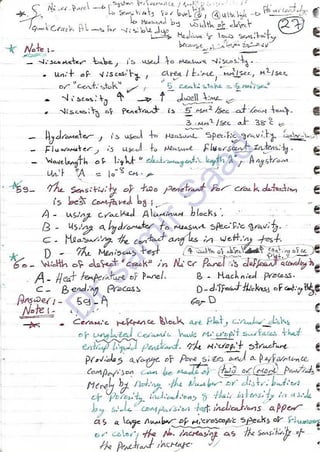 Ni cr. Panel → System Performance
to Sensitivity for level 4, 4 ultra high →
to Measured by width of defect
Medium & low sensitivity
27
Note:-
- Viscometer tube, is used to Measure Viscosity.
• Unit of Viscosity, area / time, mm²/sec, m²/sec
or "centistok", 5 centistoke = 5 mm/s²
• Viscosity ↑ → ↑ dwell time
• Viscosity of Penetrant is 5 mm²/sec at room temp.
3 mm²/sec at 38°c
- Hydrometer, is used to Measure Specific gravity.
- Fluorometer, is used to Measure Fluorescent Intensity.
- Wavelength of light "electromagnetic length", Angstrom
Unit °A = 10⁻⁸ cm.
59- The Sensitivity of two penetrant for crack detection
is best compared by;
A - using cracked Aluminum blocks.
B - Using a hydrometer to measure specific gravity.
C - Measuring the contact angles in wetting test.
D - The Meniscus Test
60- Width of defect "crack" in Ni cr Panel is different according to
A - Heat temperature of Panel. B - Machnied process.
C - Bending Process D - different thickness of coating the
Answer: 59-A 60-D
Note:-
- Ceramic reference Block are Flat, circular disks
of unglazed ceramic have micropit surfaces that
entrap liquid penetrant. The micropit structure
Provides a range of Pore sizes and a Performance
Comparison Can be made of (two or more) Penetrant
Merely by Noting the Number or distribution
of Porosity indications & their intensity in side
by side comparsion test indications apper
as a large number of microscopic specks of
or color, the No. increasing as the sensitivity of
the Penetrant increase